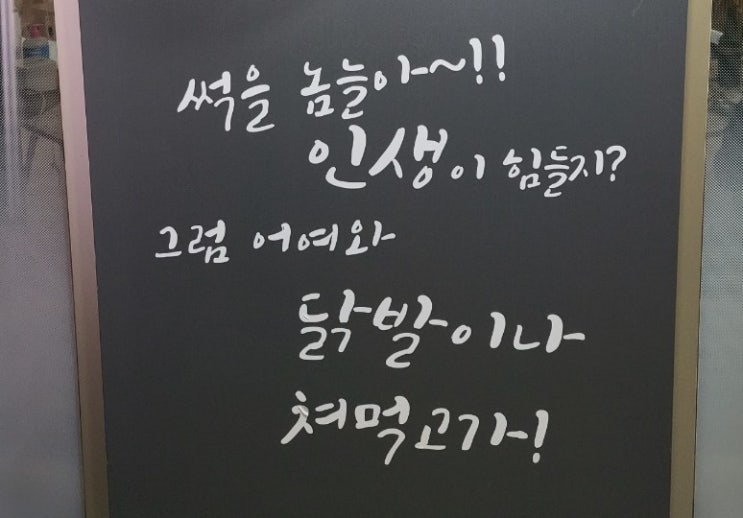 썩을 놈늘아~!!
인생이 힘들지?
그럼 어여와
닭발이나
쳐먹고가!